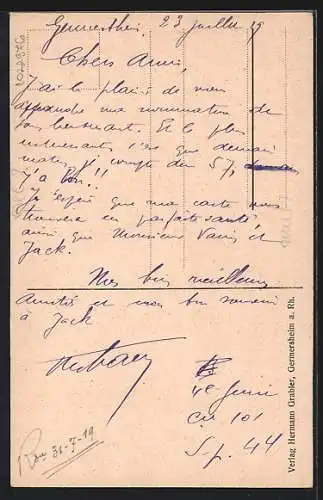 Germersheim, 23 juillet 19
Chers Amis,
J'ai le plaisir de vous
apprendre ma nomination de
sous lieutenant. Et le plus
intéressant c'est que demain
matin, j'compte du 57,
Y'a bon!!
J'espère que ma carte vous
trouvera en parfaite santé
ainsi que Monsieur et
Jack.
Mes bien meilleures
Amitiés et mon bon souvenir
à Jack
4e Génie
Cie 101
S.p. 44
Rou 31-7-19
Verlag Hermann Grabler, Germersheim a. Rh.